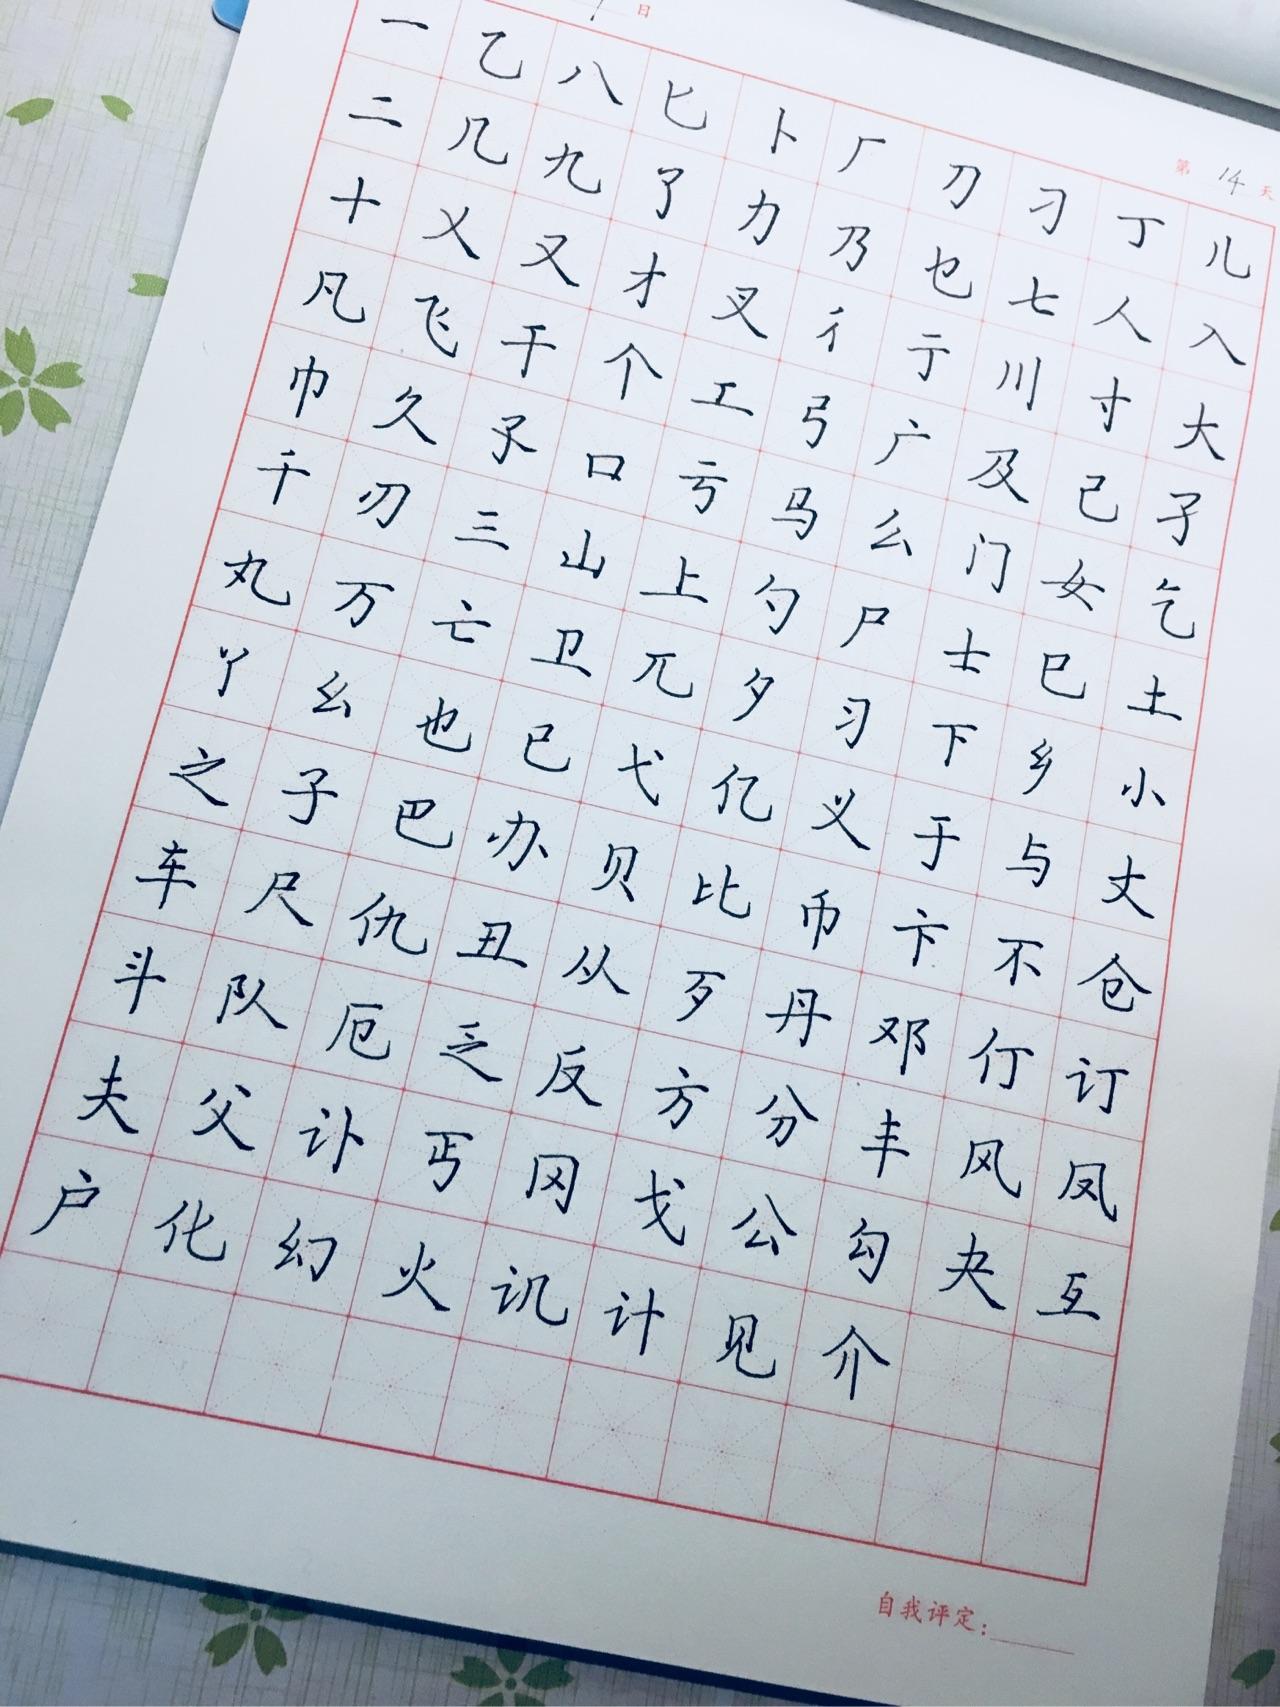 日
第 14 天
一 乙 八 匕 卜 厂 刀 刁 丁 儿
二 几 九 了 力 乃 乜 七 人 入
十 乂 又 才 叉 彳 亍 川 寸 大
凡 飞 干 个 工 弓 广 及 己 孑
巾 久 孓 口 亏 马 么 门 女 乞
千 刃 三 山 上 勺 尸 士 巳 土
丸 万 亡 卫 兀 夕 习 下 乡 小
丫 幺 也 已 弋 亿 义 于 与 丈
之 子 巴 办 贝 比 币 卞 不 仓
车 尺 仇 丑 从 歹 丹 邓 仃 订
斗 队 厄 乏 反 方 分 丰 风 凤
夫 父 讣 丐 冈 戈 公 勾 夬 互
户 化 幻 火 讥 计 见 介
自我评定: